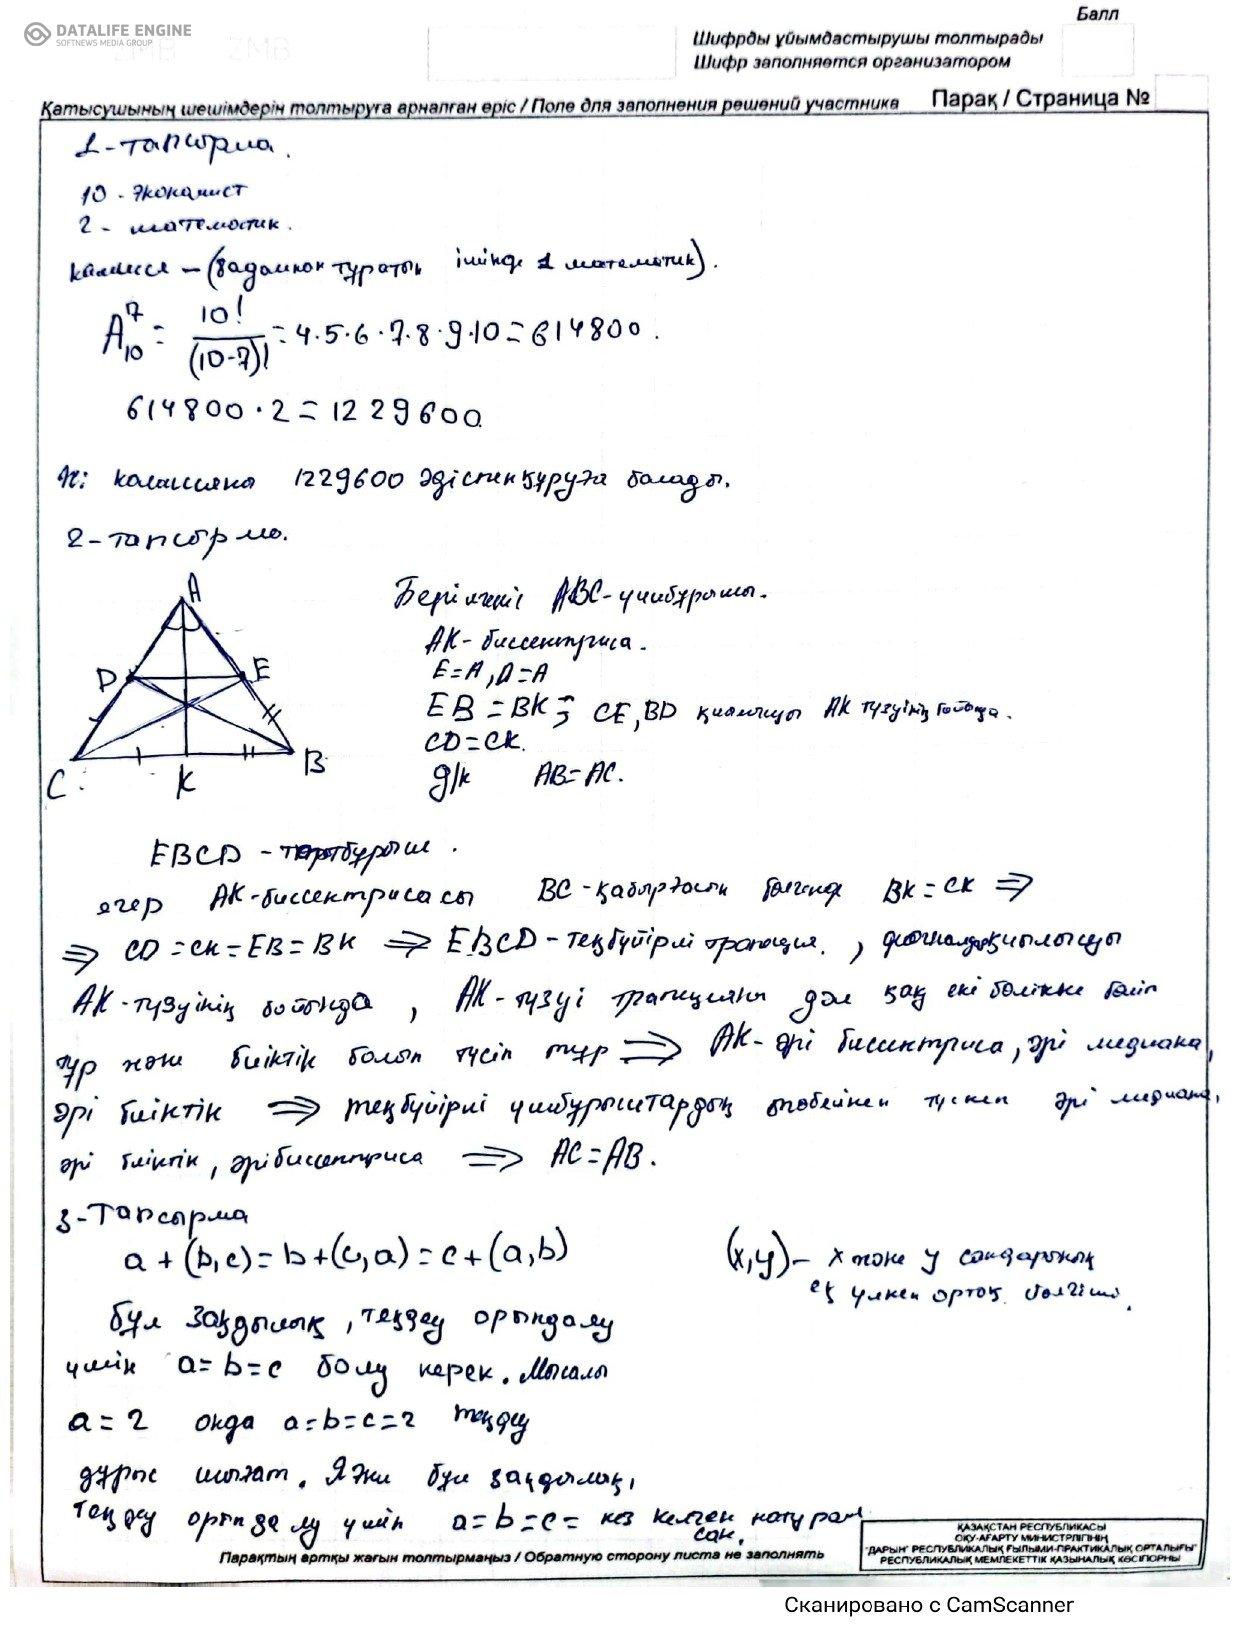 DATALIFE ENGINE
SOFTNEWS MEDIA GROUP
Балл
Шифрды ұйымдастырушы толтырады
Шифр заполняется организатором
Қатысушының шешімдерін толтыруға арналған өріс / Поле для заполнения решений участника Парақ / Страница №
1-тапсырма.
10 - экономист
2 - математик.
комиссия - (8 адамнан тұратын ішінде 1 математик).
A₁₀⁷ = 10!/(10-7)! = 4·5·6·7·8·9·10 = 614800.
614800 · 2 = 1229600
Ж: комиссияны 1229600 әдіспен құруға болады.
2-тапсырма.
A
D E
C K B
Берілгені ABC-үшбұрышы.
AK-биссектриса.
E=A, D=A
EB = BK; CE, BD қиылысуы AK түзуінің бойында.
CD=CK.
д/к AB=AC.
EBCD - төртбұрыш.
егер AK-биссектрисасы BC-қабырғасын бөлгенде BK=CK ⇒
⇒ CD=CK=EB=BK ⇒ EBCD-теңбүйірлі трапеция., қиылысуы
AK-түзуінің бойында, AK-түзуі трапецияны дәл қақ екі бөлікке бөліп
тұр және биіктік болып түсіп тұр ⇒ AK-әрі биссектриса, әрі медиана,
әрі биіктік ⇒ теңбүйірлі үшбұрыштардың төбесінен түскен әрі медиана,
әрі биіктік, әрі биссектриса ⇒ AC=AB.
3-Тапсырма
a+(b,c)=b+(c,a)=c+(a,b)
(x,y)- x және y сандарының
ең үлкен ортақ бөлгіші.
бұл заңдылық, теңдеу орындалу
үшін a=b=c болу керек. Мысалы
a=2 онда a=b=c=2 теңдеу
дұрыс шығат. Яғни бұл заңдылық,
теңдеу орындалу үшін a=b=c= кез келген натурал
сан.
Парақтың артқы жағын толтырмаңыз / Обратную сторону листа не заполнять
ҚАЗАҚСТАН РЕСПУБЛИКАСЫ
ОҚУ-АҒАРТУ МИНИСТРЛІГІНІҢ
"ДАРЫН" РЕСПУБЛИКАЛЫҚ ҒЫЛЫМИ-ПРАКТИКАЛЫҚ ОРТАЛЫҒЫ"
РЕСПУБЛИКАЛЫҚ МЕМЛЕКЕТТІК ҚАЗЫНАЛЫҚ КӘСІПОРНЫ
Сканировано с CamScanner